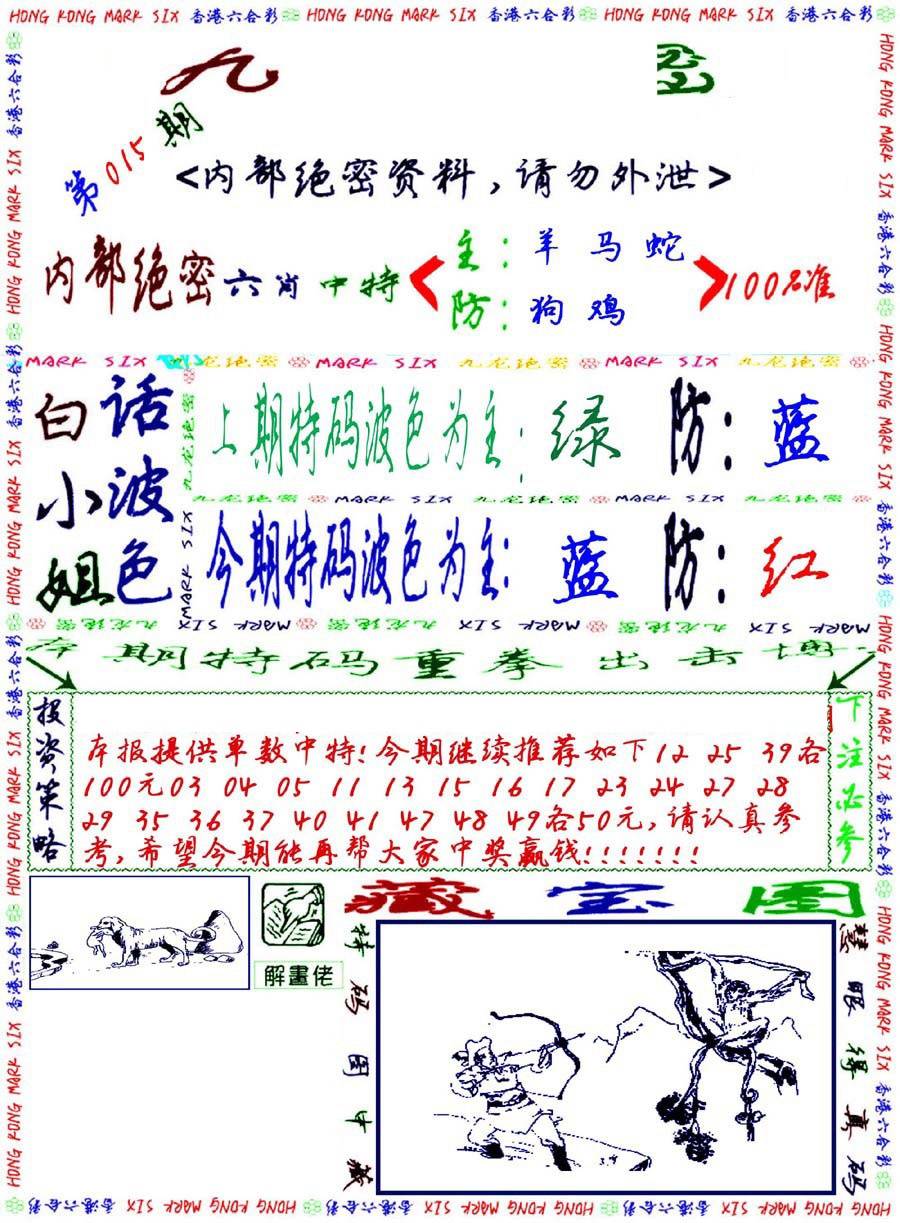 HONG KONG MARK SIX 香港六合彩 HONG KONG MARK SIX 香港六合彩 HONG KONG MARK SIX 香港六合彩
九
第015期
<内部绝密资料,请勿外泄>
内部绝密六肖中特
主:羊 马 蛇
防:狗 鸡
100%准
MARK SIX 九龙绝密 MARK SIX 九龙绝密 MARK SIX 九龙绝密
白话
小波
姐色
上期特码波色为主:绿 防:蓝
九龙绝密 MARK SIX 九龙绝密 MARK SIX 九龙绝密
今期特码波色为主:蓝 防:红
九龙绝密 MARK SIX 九龙绝密 MARK SIX 九龙绝密 MARK SIX
期特码重拳出击
投资策略
本报提供单数中特!今期继续推荐如下12 25 39各
100元03 04 05 11 13 15 16 17 23 24 27 28
29 35 36 37 40 41 47 48 49各50元,请认真参
考,希望今期能再帮大家中奖赢钱!!!!!!!
下注必参
解畫佬
藏宝图
特码图中藏
慧眼得真码
HONG KONG MARK SIX 香港六合彩 HONG KONG MARK SIX 香港六合彩 HONG KONG MARK SIX 香港六合彩